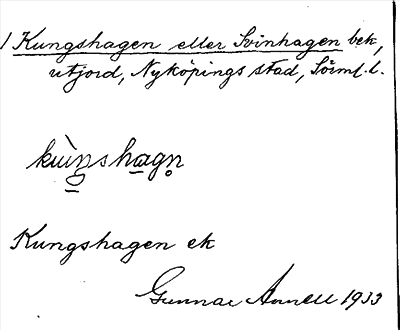 1 Kungshagen eller Svinhagen bek,
utjord, Nyköpings stad, Sörml. l.
kùŋshagn̥
Kungshagen ek
Gunnar Annell 1933